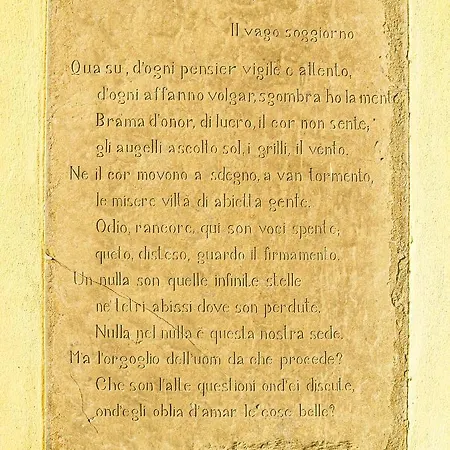 Il vago soggiorno
Qua su, d'ogni pensier vigile e attento,
d'ogni affanno volgar, sgombra ho la mente.
Brama d'onor, di lucro, il cor non sente;
gli augelli ascolto sol, i grilli, il vento.
Ne il cor movono a sdegno, a van tormento,
le misere viltà di abietta gente.
Odio, rancore, qui son voci spente;
queto, disteso, guardo il firmamento.
Un nulla son quelle infinite stelle
ne' tetri abissi dove son perdute,
Nulla nel nulla è questa nostra sede.
Ma l'orgoglio dell'uom da che procede?
Che son l'alte questioni ond'ei discute,
ond'egli oblia d'amar le cose belle?